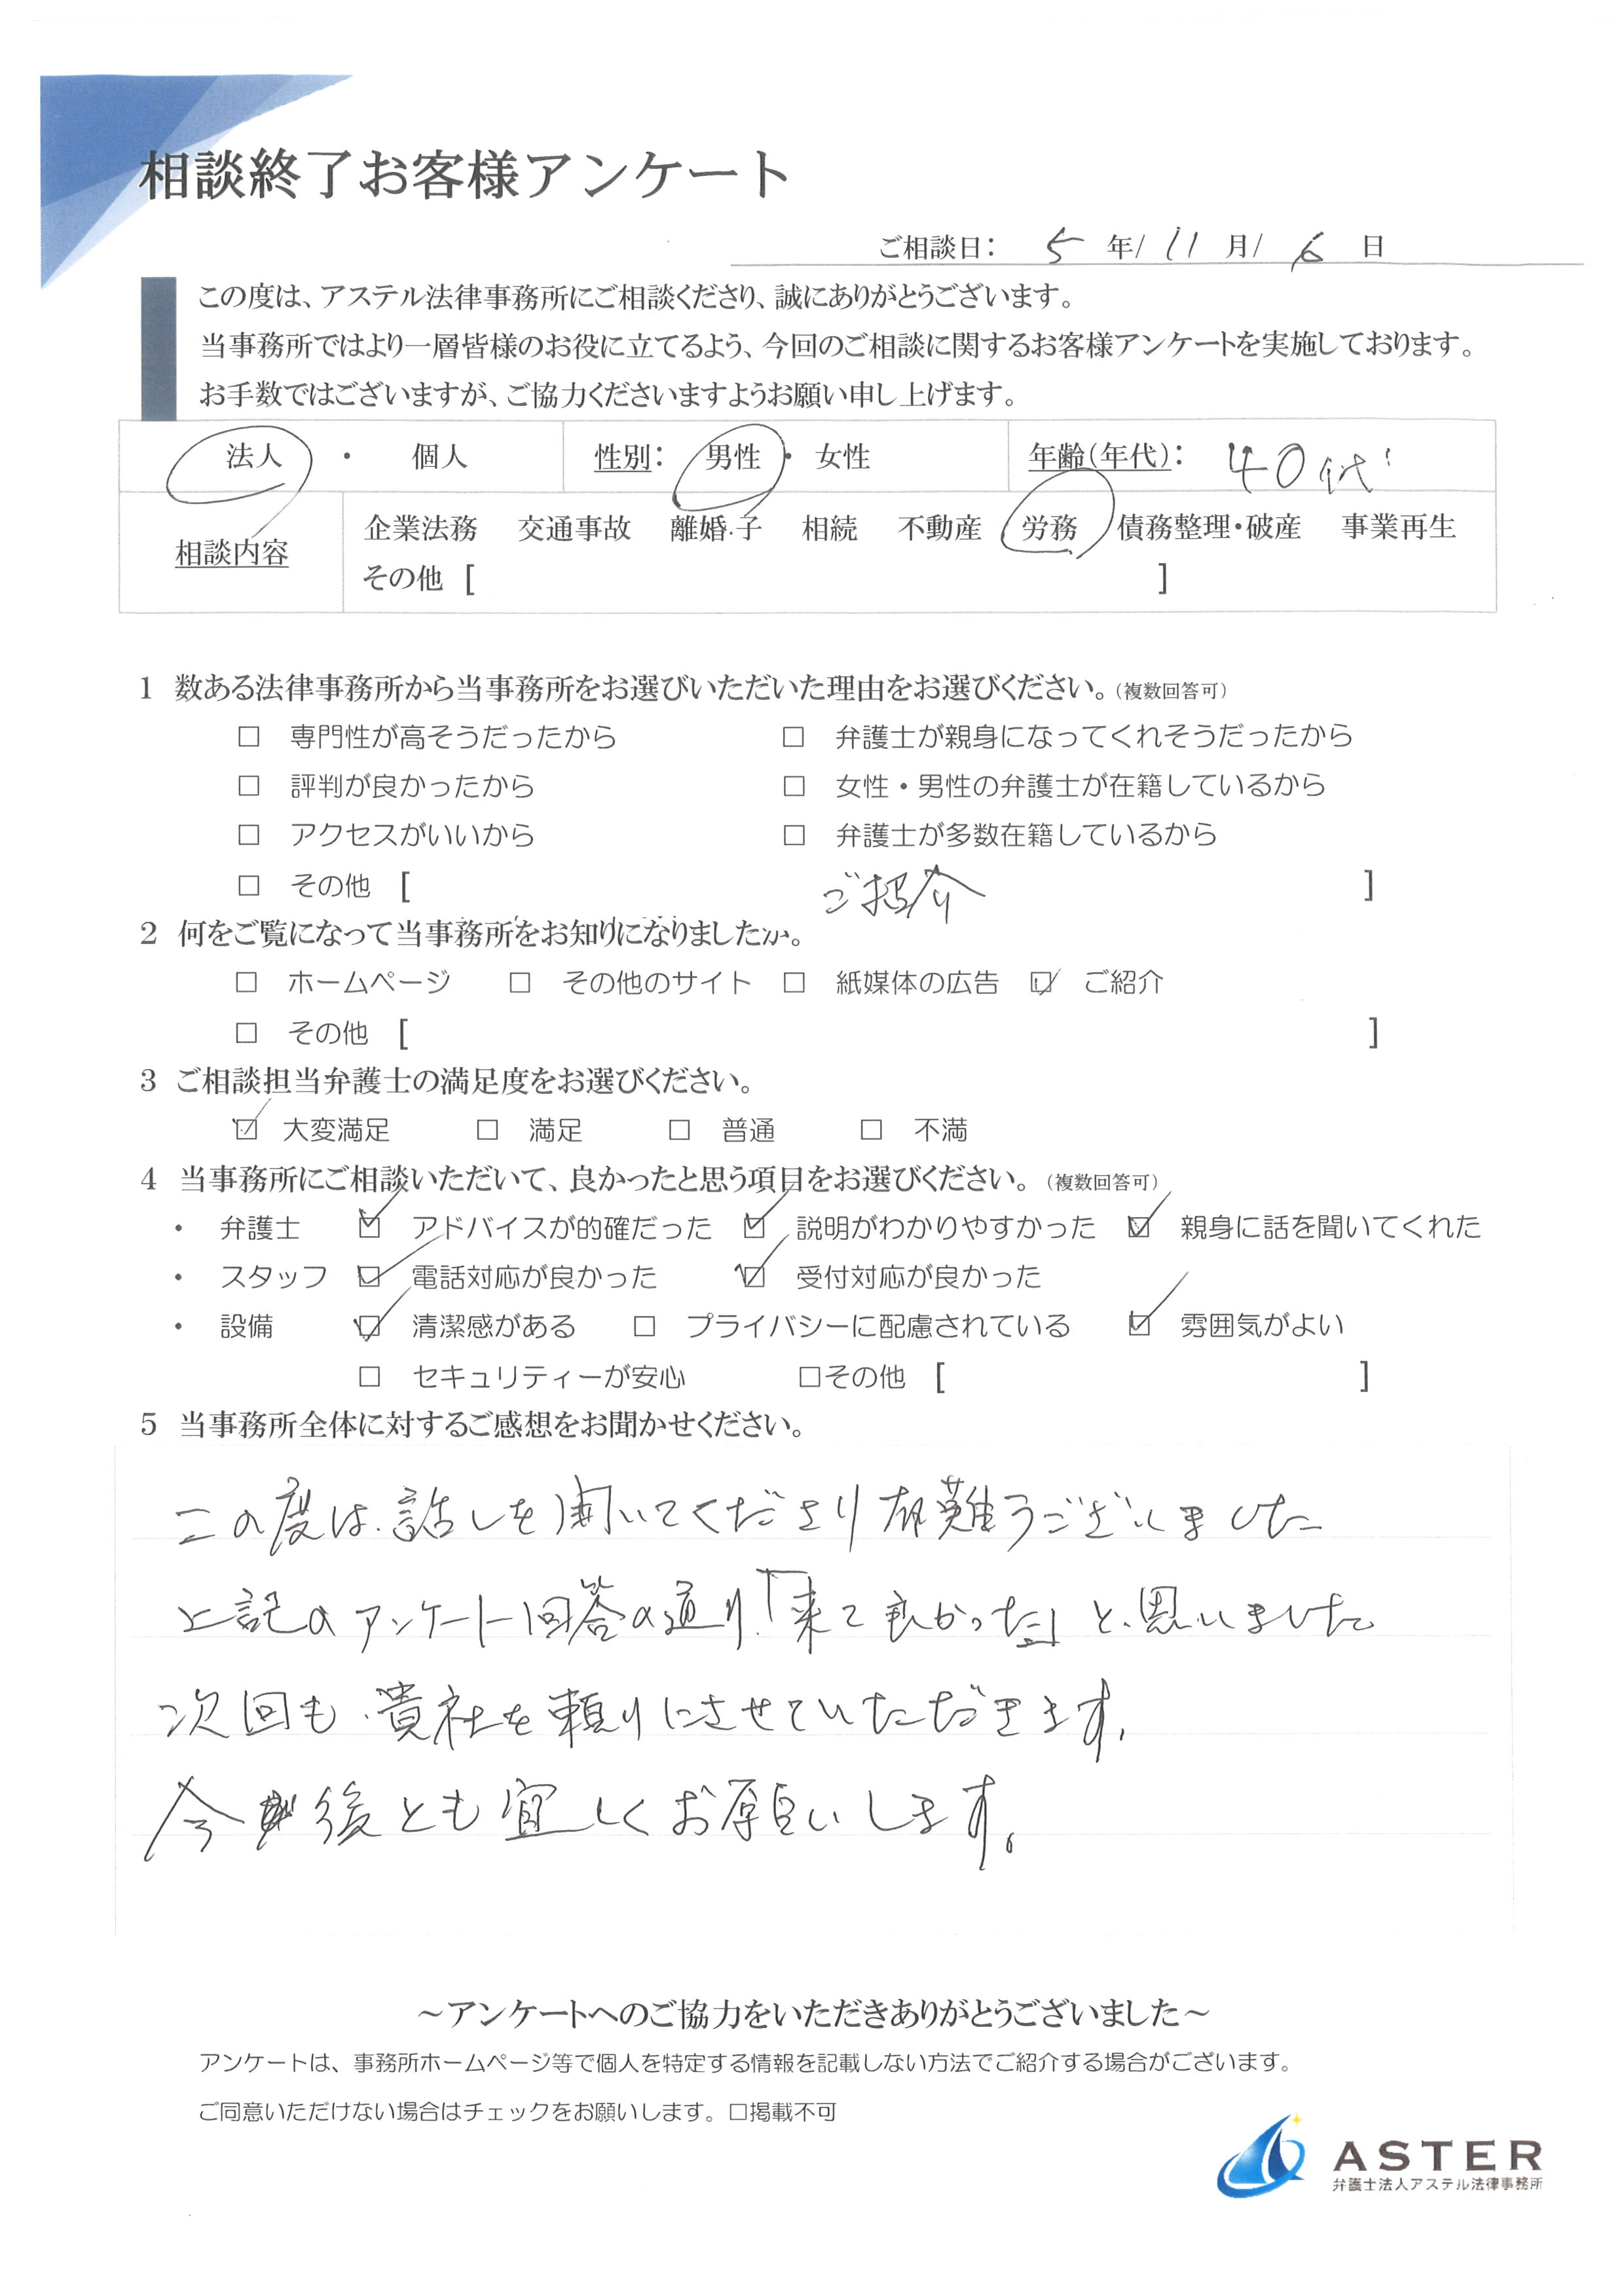 相談終了お客様アンケート
ご相談日： 5 年/ 11 月/ 6 日
この度は、アステル法律事務所にご相談くださり、誠にありがとうございます。
当事務所ではより一層皆様のお役に立てるよう、今回のご相談に関するお客様アンケートを実施しております。
お手数ではございますが、ご協力くださいますようお願い申し上げます。
法人 ・ 個人 性別： 男性 ・ 女性 年齢(年代)： 40代
相談内容 企業法務 交通事故 離婚・子 相続 不動産 労務 債務整理・破産 事業再生
その他 [ ]
1 数ある法律事務所から当事務所をお選びいただいた理由をお選びください。(複数回答可)
□ 専門性が高そうだったから □ 弁護士が親身になってくれそうだったから
□ 評判が良かったから □ 女性・男性の弁護士が在籍しているから
□ アクセスがいいから □ 弁護士が多数在籍しているから
□ その他 [ ご招介 ]
2 何をご覧になって当事務所をお知りになりましたか。
□ ホームページ □ その他のサイト □ 紙媒体の広告 ☑ ご紹介
□ その他 [ ]
3 ご相談担当弁護士の満足度をお選びください。
☑ 大変満足 □ 満足 □ 普通 □ 不満
4 当事務所にご相談いただいて、良かったと思う項目をお選びください。(複数回答可)
・ 弁護士 ☑ アドバイスが的確だった ☑ 説明がわかりやすかった ☑ 親身に話を聞いてくれた
・ スタッフ ☑ 電話対応が良かった ☑ 受付対応が良かった
・ 設備 ☑ 清潔感がある □ プライバシーに配慮されている ☑ 雰囲気がよい
□ セキュリティーが安心 □その他 [ ]
5 当事務所全体に対するご感想をお聞かせください。
この度は、話しを聞いてくださり有難うございました
上記のアンケート回答の通り「来て良かった」と、思いました。
次回も、貴社を頼りにさせていただきます。
今後とも宜しくお願いします。
～アンケートへのご協力をいただきありがとうございました～
アンケートは、事務所ホームページ等で個人を特定する情報を記載しない方法でご紹介する場合がございます。
ご同意いただけない場合はチェックをお願いします。□掲載不可
ASTER
弁護士法人アステル法律事務所